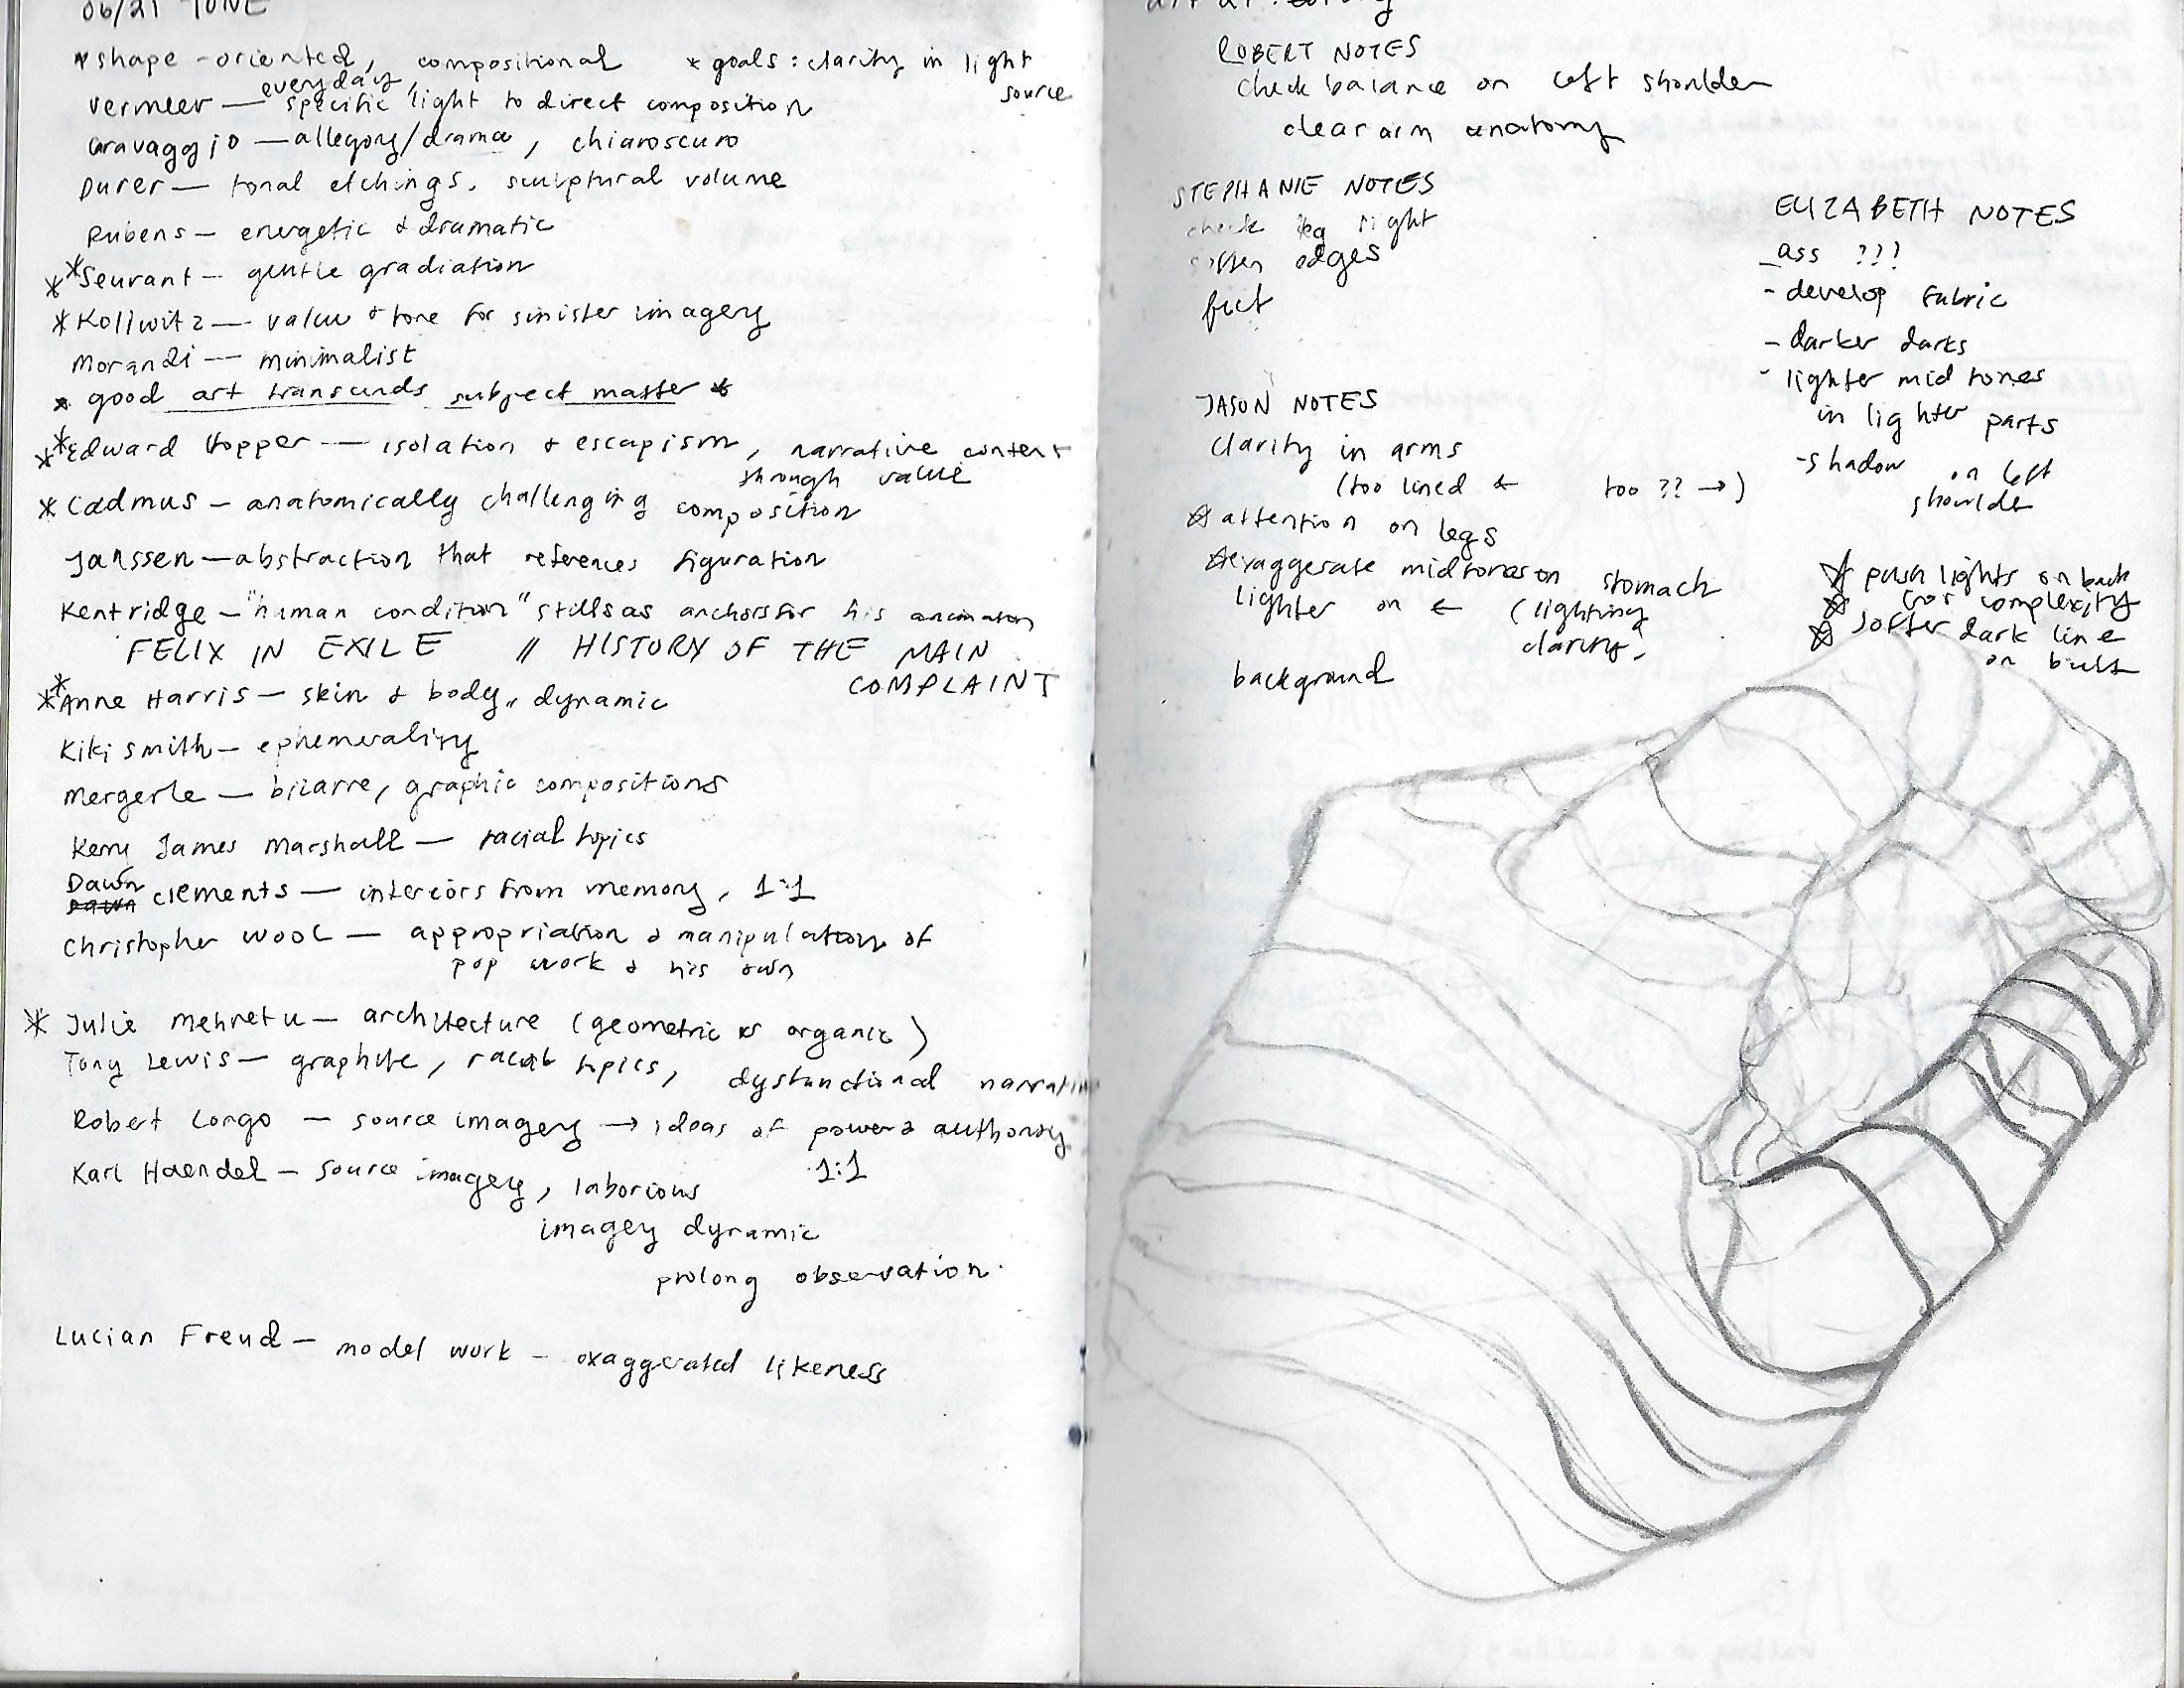 06/21 TONE
* shape-oriented, compositional * goals: clarity in light source
everyday,
Vermeer — specific light to direct composition
Caravaggio — allegory/drama, chiaroscuro
Durer — tonal etchings, sculptural volume
Rubens — energetic & dramatic
** Seurant — gentle gradiation
* Kollwitz — value & tone for sinister imagery
Morandi — minimalist
* good art transcends subject matter *
** Edward Hopper — isolation & escapism, narrative content
through value
* Cadmus — anatomically challenging composition
Janssen — abstraction that references figuration
Kentridge — "human condition" stills as anchors for his animation
FELIX IN EXILE // HISTORY OF THE MAIN
COMPLAINT
** Anne Harris — skin & body, dynamic
Kiki Smith — ephemerality
Mergerle — bizarre, graphic compositions
Kerry James Marshall — racial topics
Dawn
Clements — interiors from memory, 1:1
Christopher Wool — appropriation & manipulation of
pop work & his own
* Julie Mehretu — architecture (geometric vs organic)
Tony Lewis — graphite, racial topics, dysfunctional
Robert Longo — source imagery → ideas of power & authority
Karl Haendel — source imagery, laborious 1:1
imagey dynamic
prolong observation.
Lucian Freud — model work — exaggerated likeness
ROBERT NOTES
check balance on left shoulder
clear arm anatomy
STEPHANIE NOTES
check leg right
soften edges
feet
JASON NOTES
clarity in arms
(too lined ← too ?? →)
☆ attention on legs
☆ exaggerate midtones on stomach
lighter on ← (lighting
clarity)
background
ELIZABETH NOTES
- ass ???
- develop fabric
- darker darks
- lighter mid tones
in lighter parts
- shadow on left
shoulder
☆ push lights on back
☆ for complexity
☆ softer dark line
on butt